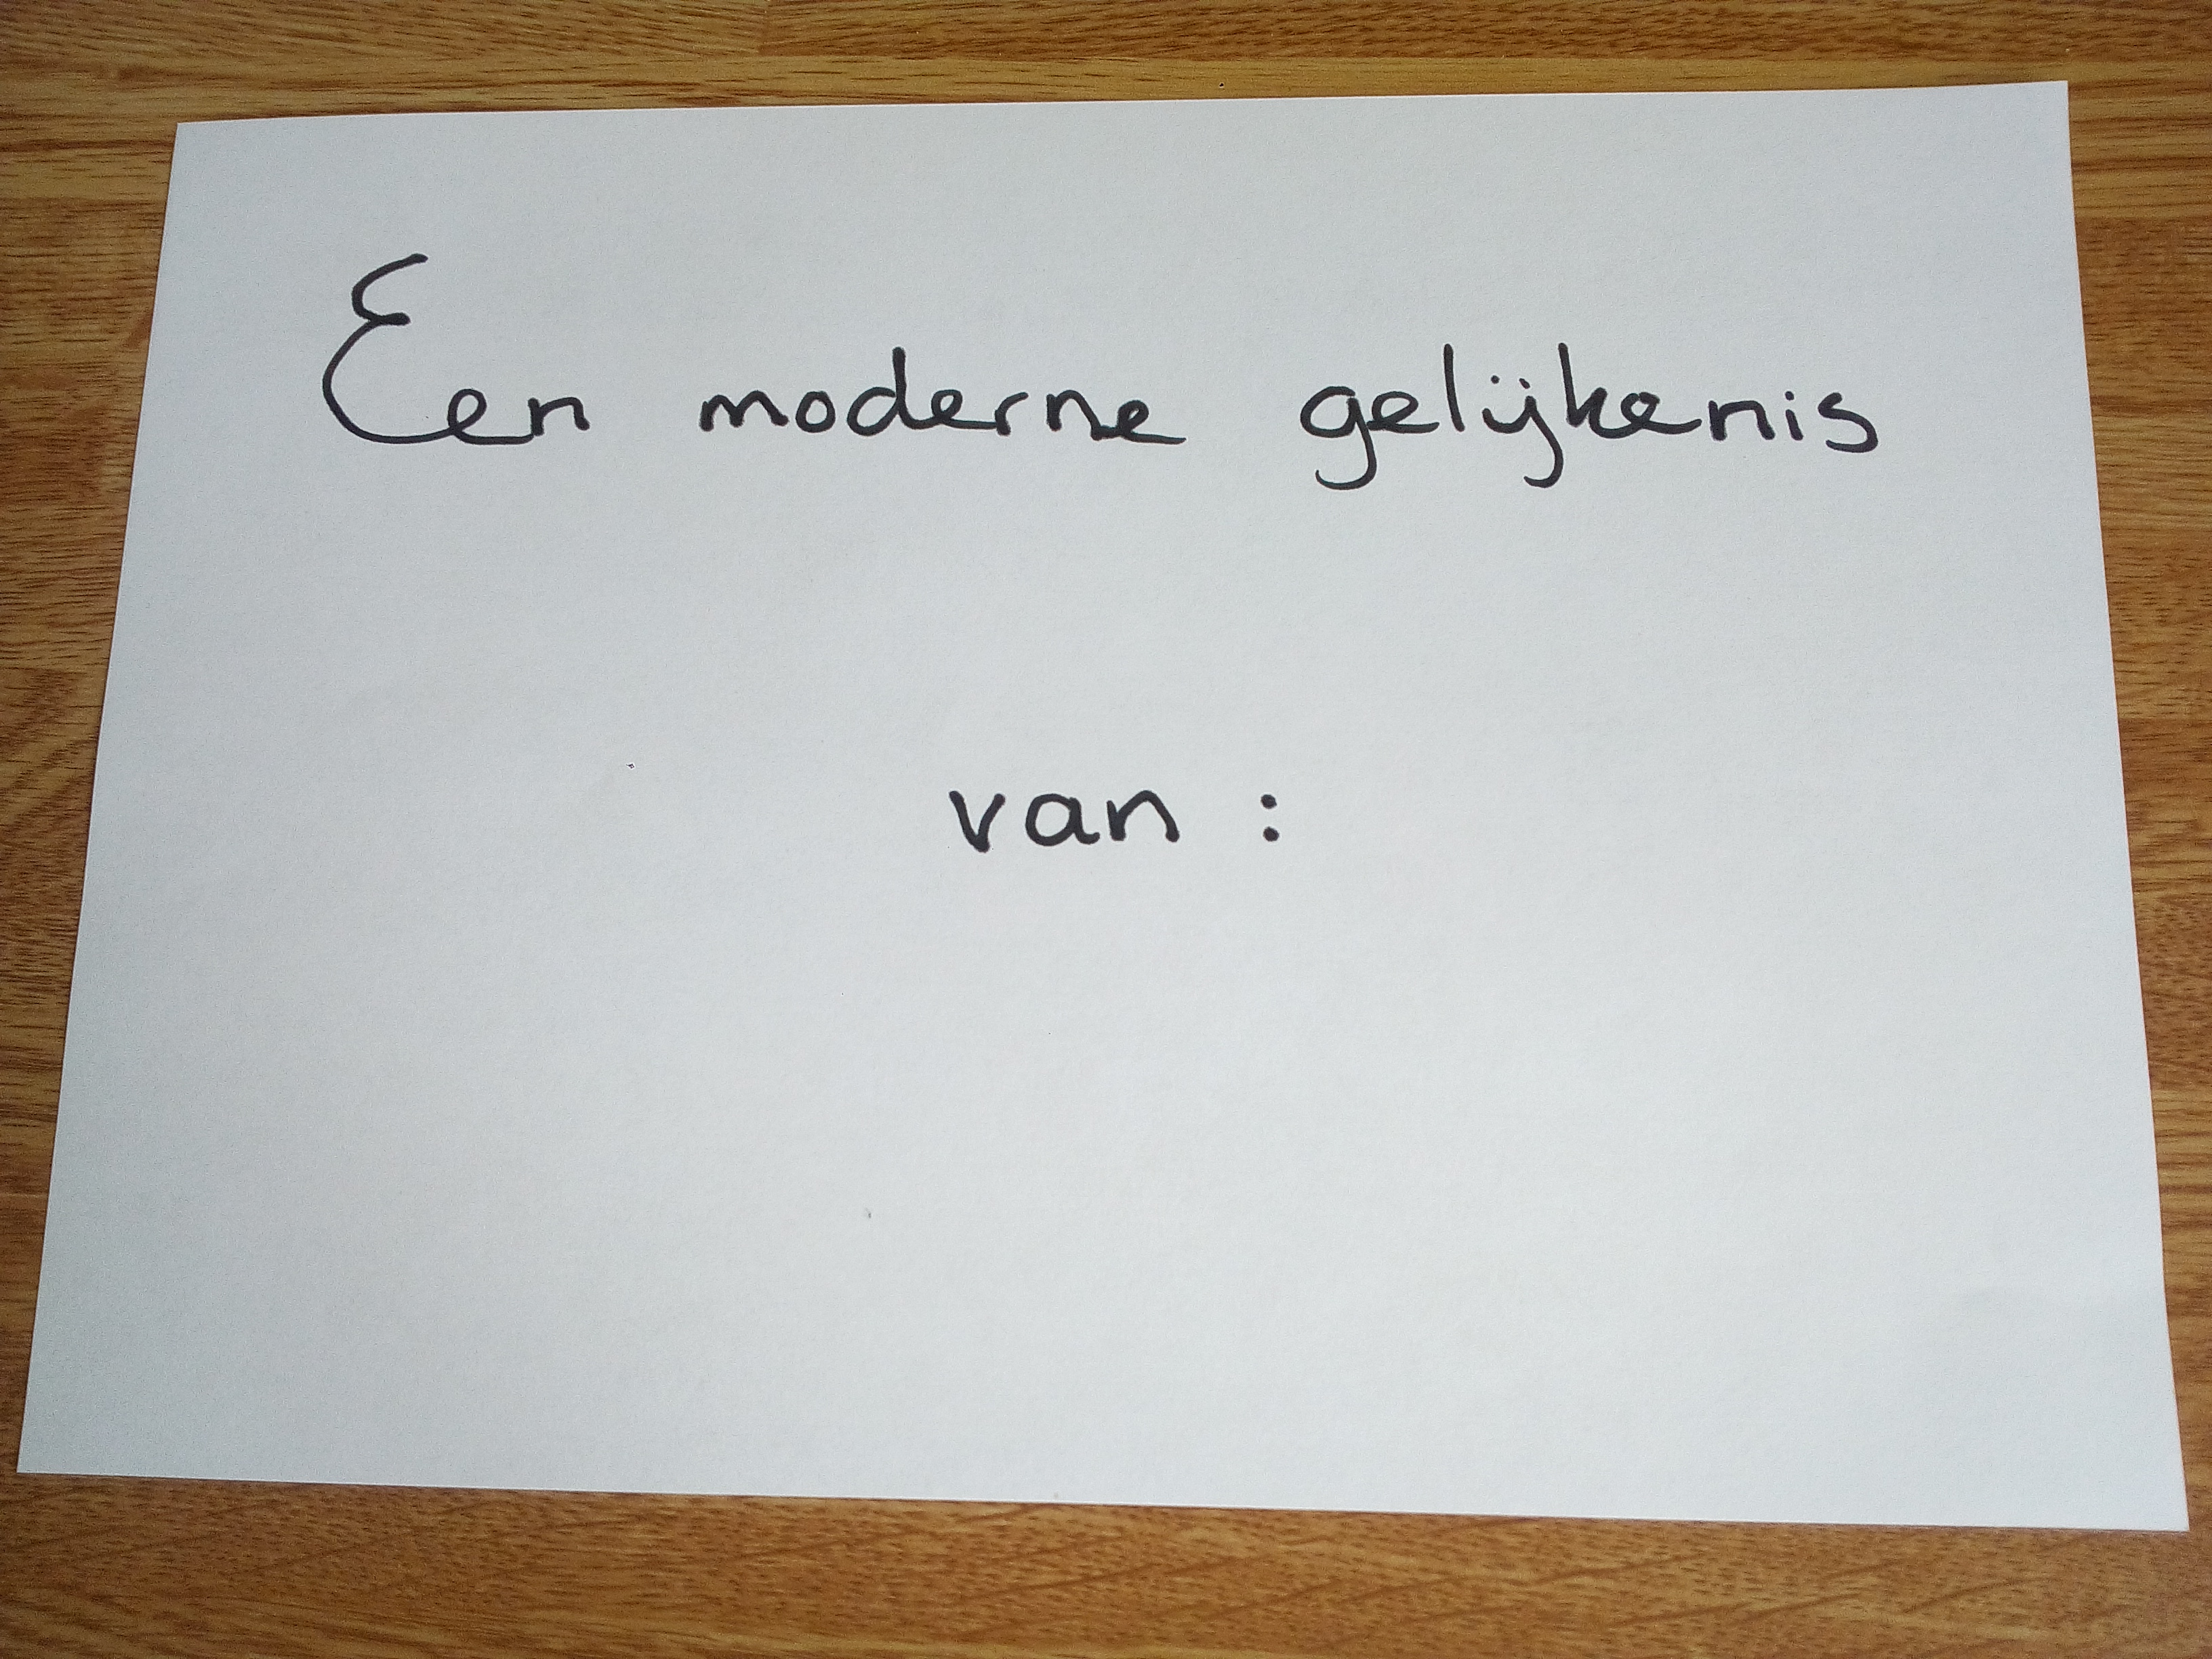 Een moderne gelijkenis
van :